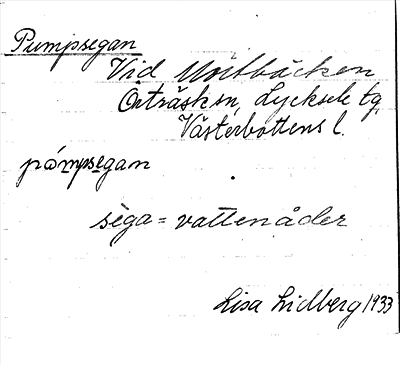 Pumpsegan
Vid Mörtbäcken
Örträsk sn, Lycksele tg,
Västerbottens l.
pómpsegan
sèga = vattenåder
Lisa Lidberg 1933